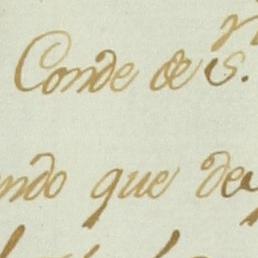 Conde de S.
ndo que de